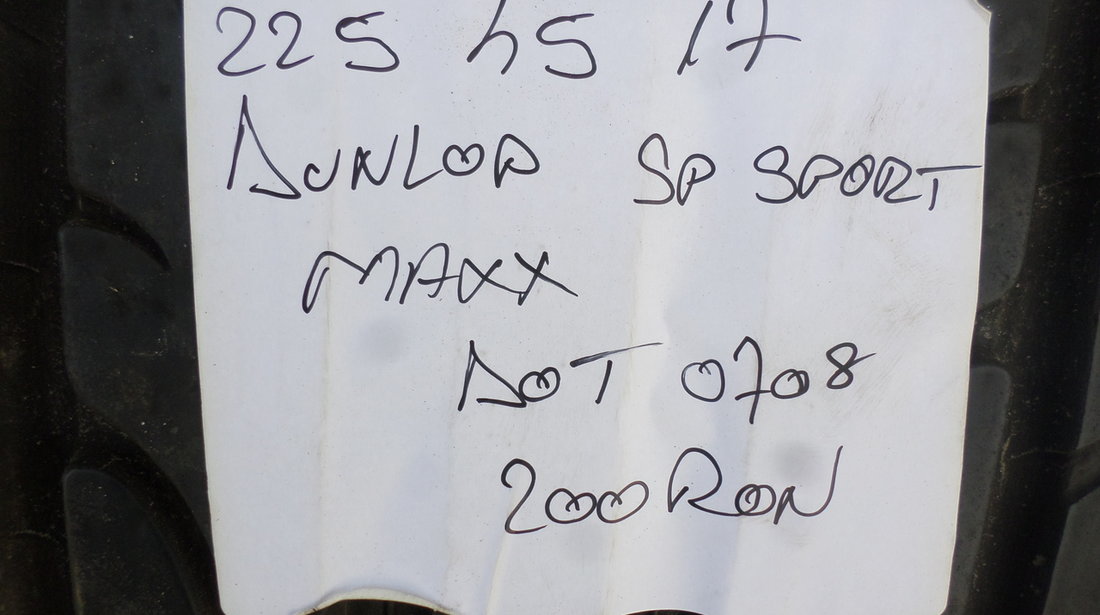 225 45 17
DUNLOP SP SPORT
MAXX
DOT 0708
200 RON